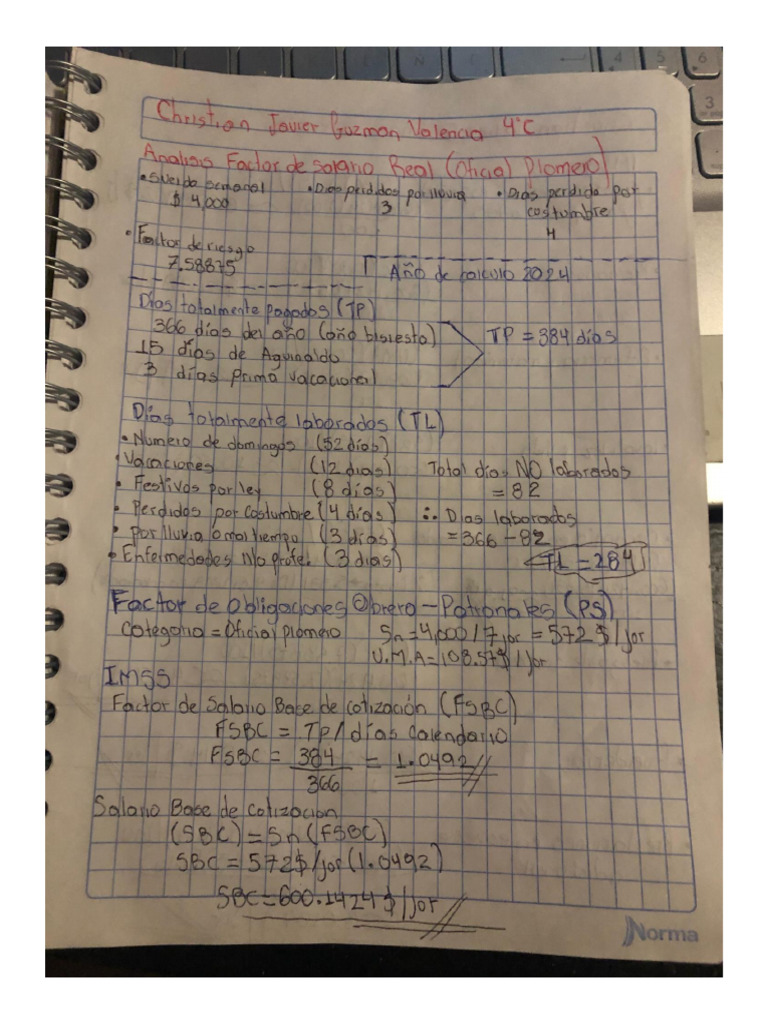 Christian Javier Guzman Valencia 4°C
Analisis Factor de salario Real (Oficial Plomero)
• Sueldo semanal • Dias perdidos por lluvia • Dias perdida por
$ 4,000 3 costumbre
4
• Factor de riesgo
7.58875 Año de calculo 2024
Días totalmente pagados (TP)
366 días del año (año bisiesto) TP = 384 días
15 días de Aguinaldo
3 días prima vacacional
Días totalmente laborados (TL)
• Numero de domingos (52 días)
• Vacaciones (12 dias) Total días NO laborados
• Festivos por ley (8 días) = 82
• Perdidos por costumbre (4 días) ∴ Dias laborados
• por lluvia o mal tiempo (3 días) = 366 - 82
• Enfermedades No profe. (3 dias) TL = 284
Factor de Obligaciones Obrero - Patronales (PS)
Categoria = Oficial plomero Sn = 4,000 / 7 jor = 572 $ / jor
U.M.A = 108.57 $ / jor
IMSS
Factor de Salario Base de cotización (FSBC)
FSBC = TP / días calendario
FSBC = 384 = 1.0492
366
Salario Base de Cotizacion
(SBC) = Sn (FSBC)
SBC = 572 $ / jor (1.0492)
SBC = 600.1424 $ / jor
Norma
3
4
5
6